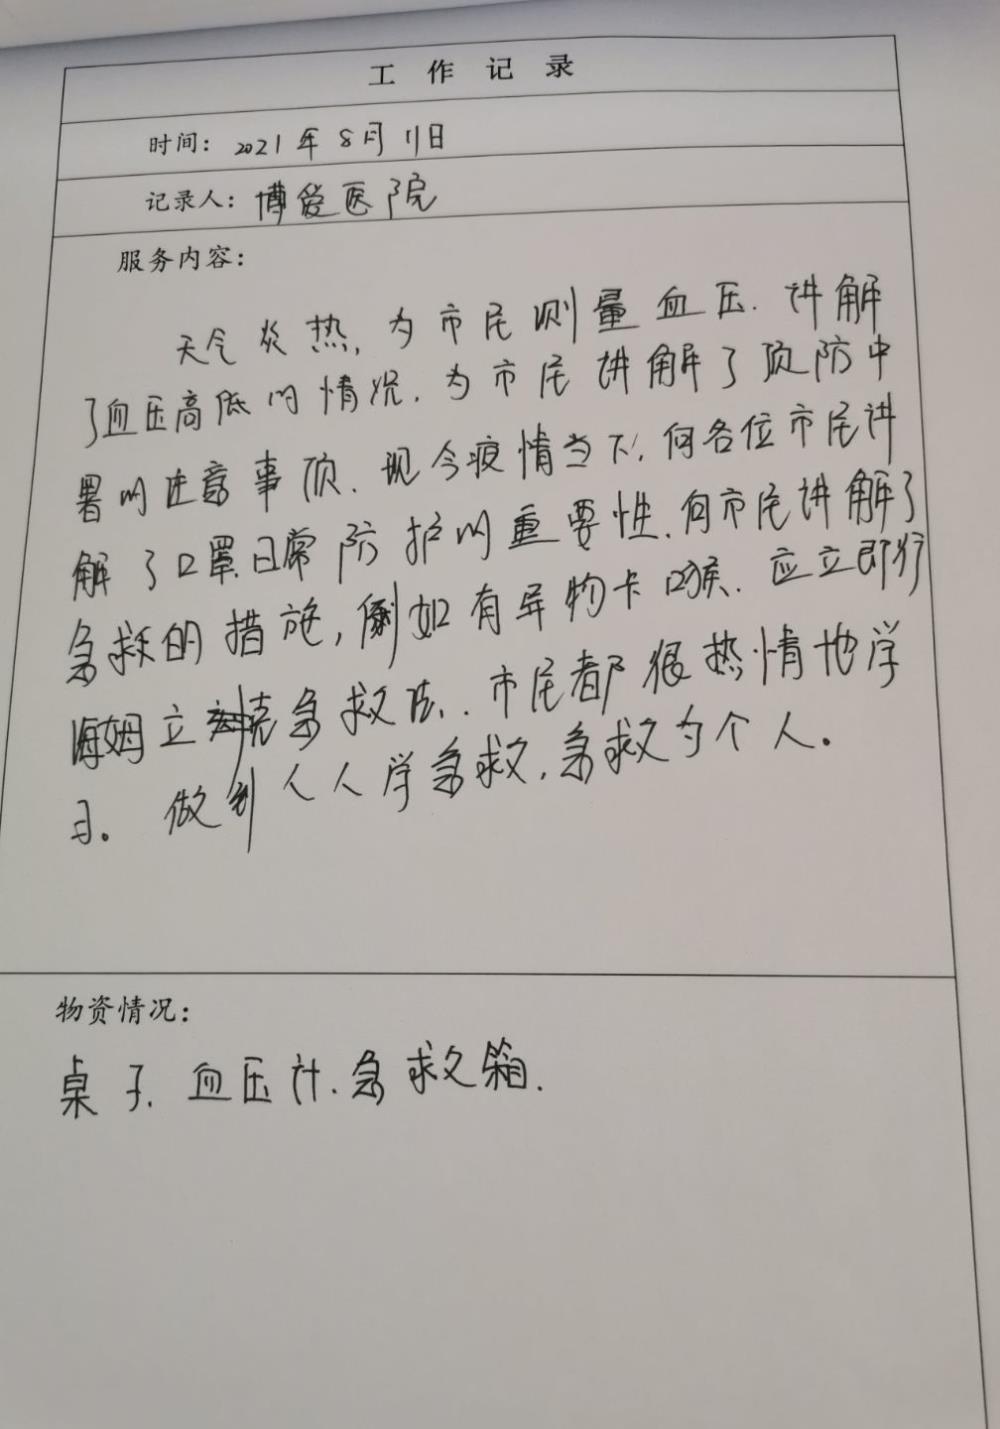 工作记录
时间：2021年8月11日
记录人：博爱医院
服务内容：
天气炎热，为市民测量血压.讲解
了血压高低的情况.为市民讲解了预防中
署的注意事项.现今疫情当下，向各位市民讲
解了口罩日常防护的重要性.向市民讲解了
急救的措施，例如有异物卡喉.应立即行
海姆立克急救法.市民都很热情地学
习。做到人人学急救，急救为个人。
物资情况：
桌子.血压计.急救箱.